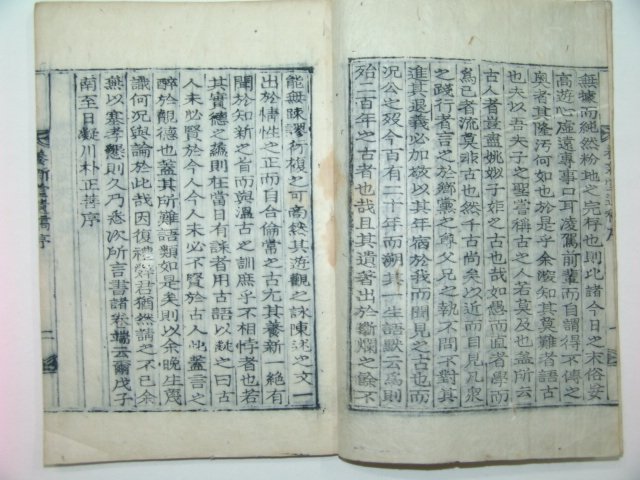 無據而純然粉地之完存也則比諸今日之末俗妄
高遊心虛遠專事口耳凌駕前輩而自謂得不傳之
奧者其隆汚何如也於是乎余竊知其莫難者語古
也夫以吾夫子之聖嘗稱古之人若莫及也盖所云
古人者豈盡姚姒子姓之古也哉如愚而直者學而
爲己者流莫非古也然千古尚矣以近而目見瓦泉
之踐行者言之於鄕黨之尊父兄之執不問不對其
進其退義必加厥以其年宿於我而聞見之古也而
況公之歿今百有二十年而溯其一生語默云爲則
殆二百年之古者也哉且其遺著出於斷爛之餘不
能無踈漏衍複之可商然其遊觀之詠陳述之文一
出於情性之正而自合倫常之古尤其養新一絕有
關於知新之首而與溫古之訓庶乎不相悖者也若
其實德之讖則在當日有誄者用古語以贊之曰古
人未必賢於今人今人未必不賢於古人此盖言之
醉於觀德也盖其所難語類如是矣則以余晩生蔑
識何況與論於此哉因復禮辭君猶然請之不已余
無以塞孝懇則久乃悉次所言書諸卷端云爾戊子
南至日凝川朴正善序